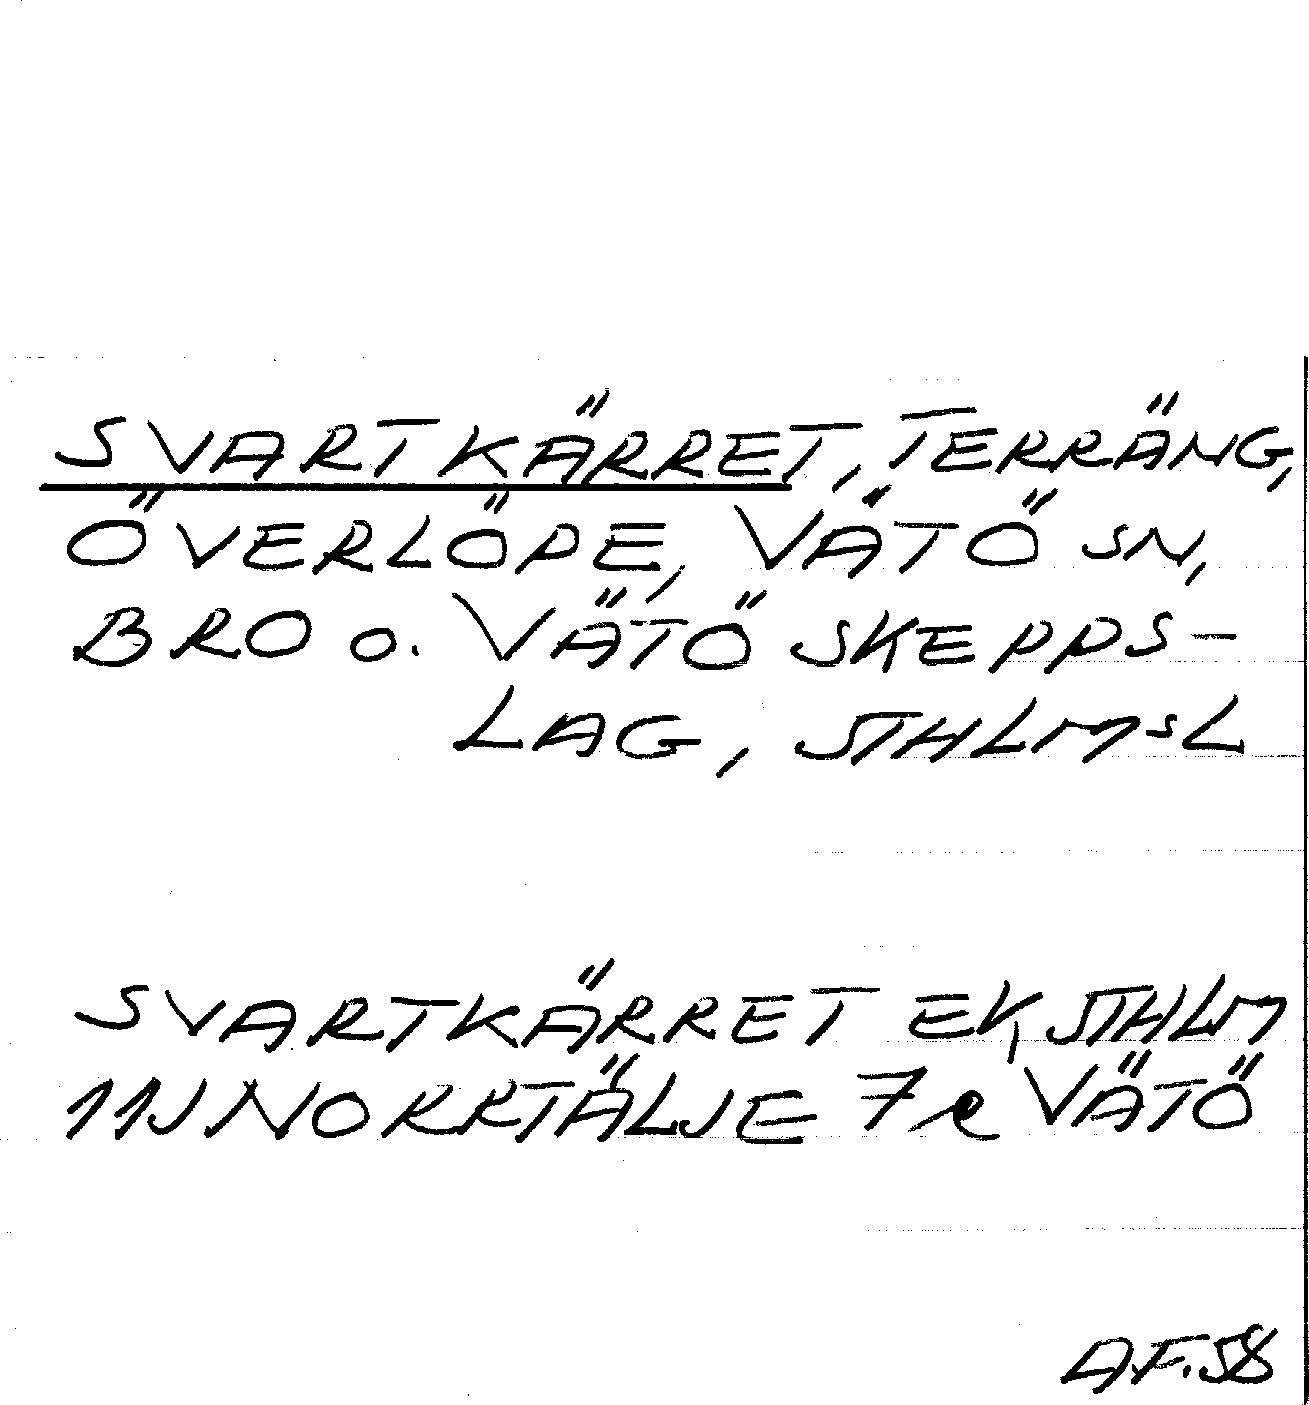 SVARTKÄRRET, TERRÄNG,
ÖVERLÖPE, VÄTÖ SN,
BRO o. VÄTÖ SKEPPS-
LAG, STHLMSL
SVARTKÄRRET EK, STHLM
11J NORRTÄLJE 7e VÄTÖ
A.F.58